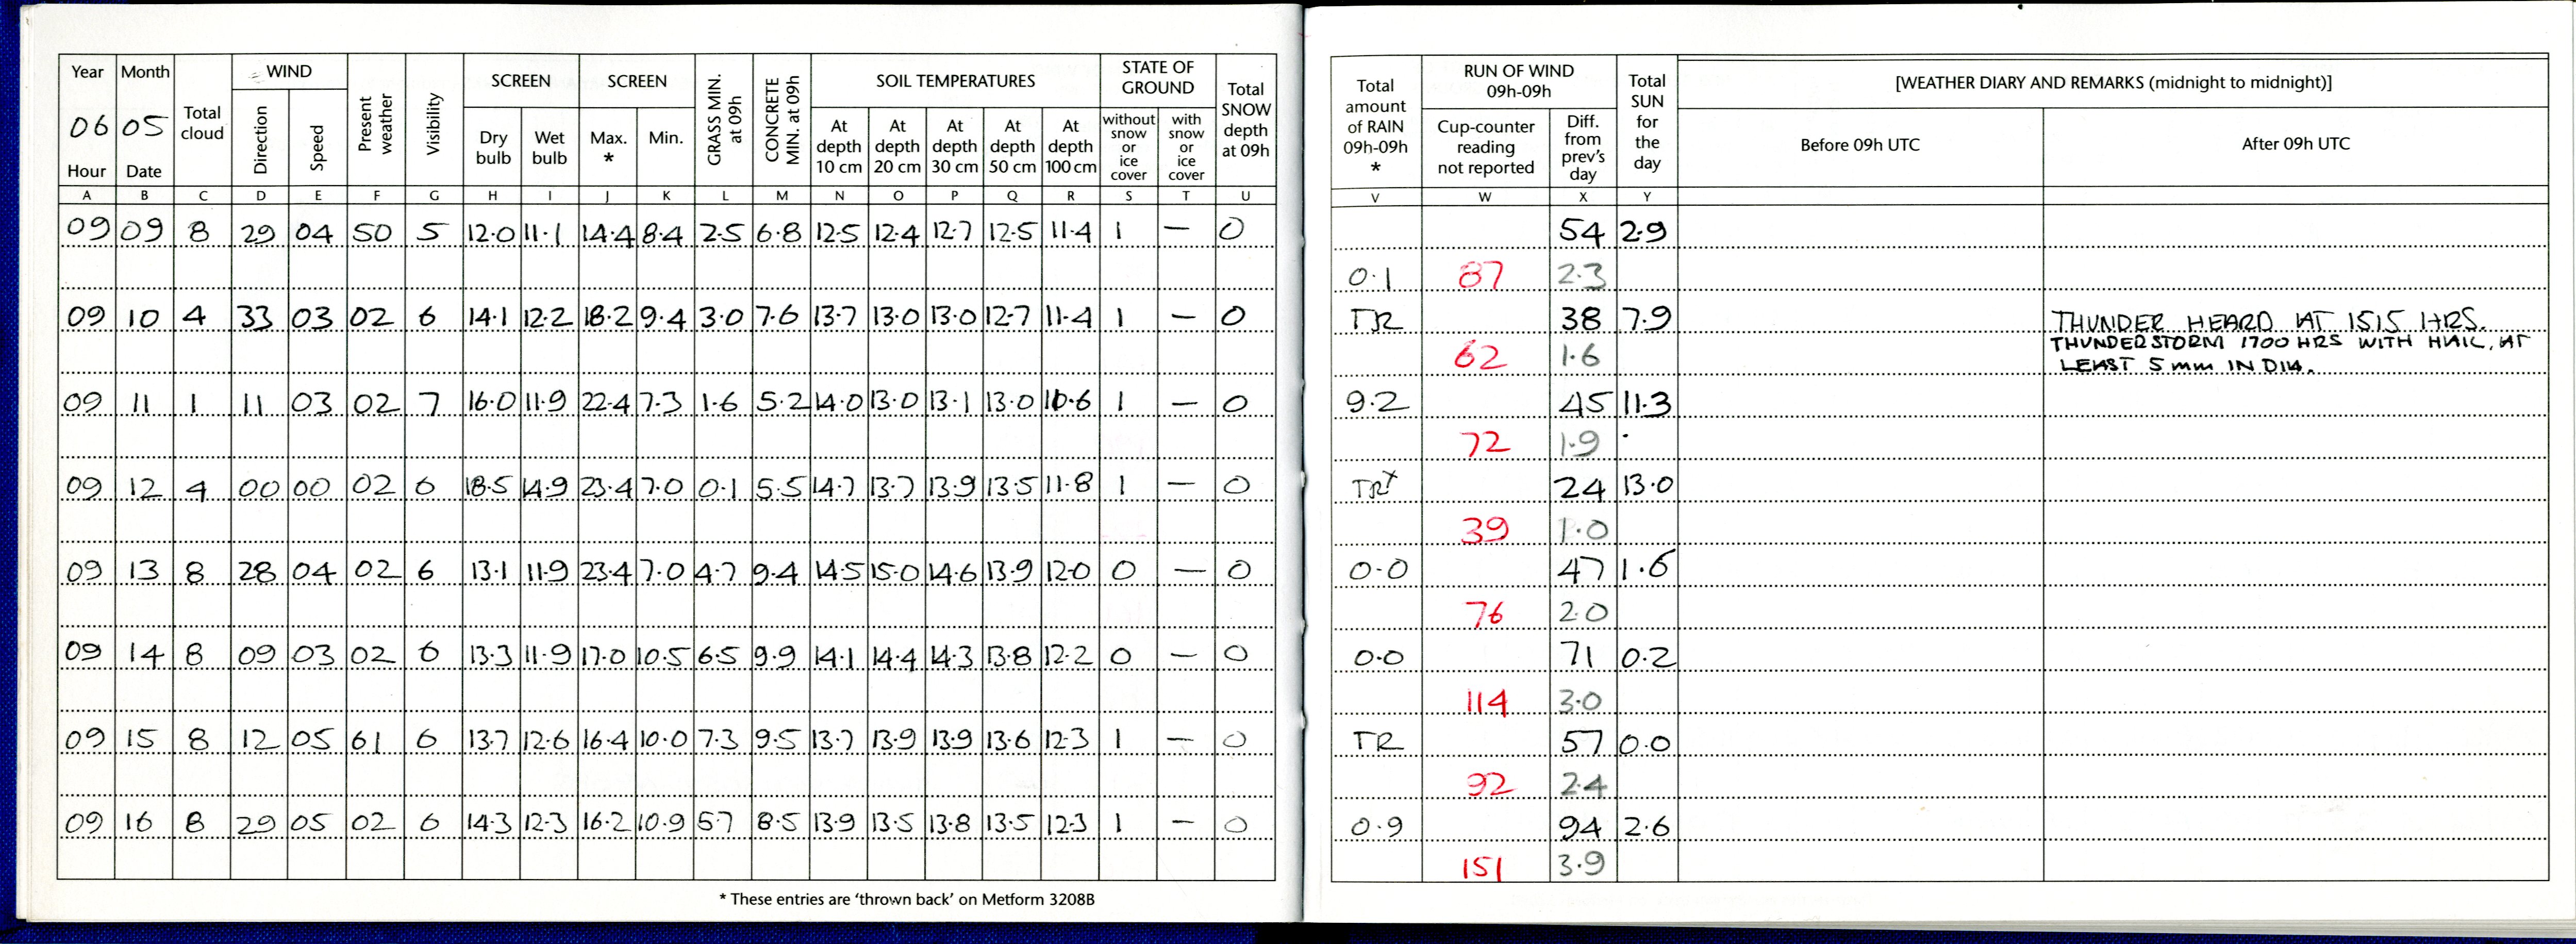 Year Month Total cloud WIND Present weather Visibility SCREEN SCREEN GRASS MIN. at 09h CONCRETE MIN. at 09h SOIL TEMPERATURES STATE OF GROUND Total SNOW depth at 09h
06 05 Direction Speed Dry bulb Wet bulb Max. * Min. At depth 10 cm At depth 20 cm At depth 30 cm At depth 50 cm At depth 100 cm without snow or ice cover with snow or ice cover
Hour Date
A B C D E F G H I J K L M N O P Q R S T U
09 09 8 29 04 50 5 12.0 11.1 14.4 8.4 2.5 6.8 12.5 12.4 12.7 12.5 11.4 1 — 0
09 10 4 33 03 02 6 14.1 12.2 18.2 9.4 3.0 7.6 13.7 13.0 13.0 12.7 11.4 1 — 0
09 11 1 11 03 02 7 16.0 11.9 22.4 7.3 1.6 5.2 14.0 13.0 13.1 13.0 10.6 1 — 0
09 12 4 00 00 02 6 18.5 14.9 23.4 7.0 0.1 5.5 14.7 13.7 13.9 13.5 11.8 1 — 0
09 13 8 28 04 02 6 13.1 11.9 23.4 7.0 4.7 9.4 14.5 15.0 14.6 13.9 12.0 0 — 0
09 14 8 09 03 02 6 13.3 11.9 17.0 10.5 6.5 9.9 14.1 14.4 14.3 13.8 12.2 0 — 0
09 15 8 12 05 61 6 13.7 12.6 16.4 10.0 7.3 9.5 13.7 13.9 13.9 13.6 12.3 1 — 0
09 16 8 29 05 02 6 14.3 12.3 16.2 10.9 5.7 8.5 13.9 13.5 13.8 13.5 12.3 1 — 0
* These entries are 'thrown back' on Metform 3208B
Total amount of RAIN 09h-09h * RUN OF WIND 09h-09h Total SUN for the day [WEATHER DIARY AND REMARKS (midnight to midnight)]
Cup-counter reading not reported Diff. from prev's day Before 09h UTC After 09h UTC
V W X Y
54 2.9
0.1 87 2.3
TR 38 7.9 THUNDER HEARD AT 1515 HRS.
THUNDERSTORM 1700 HRS WITH HAIL, AT
62 1.6 LEAST 5 mm IN DIA.
9.2 45 11.3
72 1.9
TRx 24 13.0
39 1.0
0.0 47 1.6
76 2.0
0.0 71 0.2
114 3.0
TR 57 0.0
92 2.4
0.9 94 2.6
151 3.9